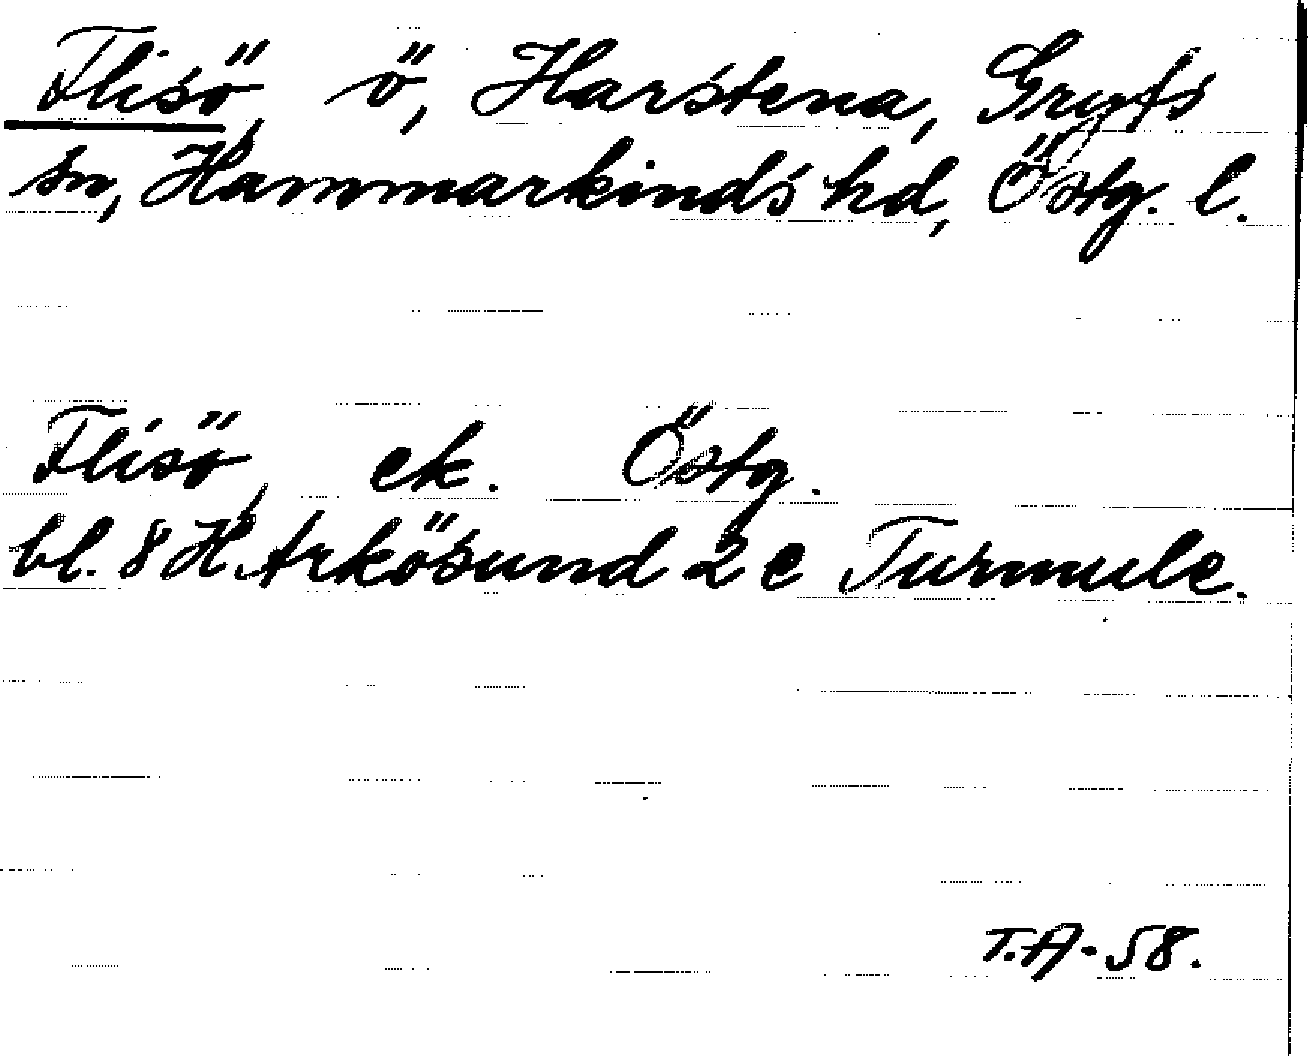 Flisö, ö, Harstena, Gryts
sn, Hammarkinds hd, Östg. l.
Flisö, ek. Östg.
bl. 8 H Arkösund 2 e Turmule.
T.A-58.